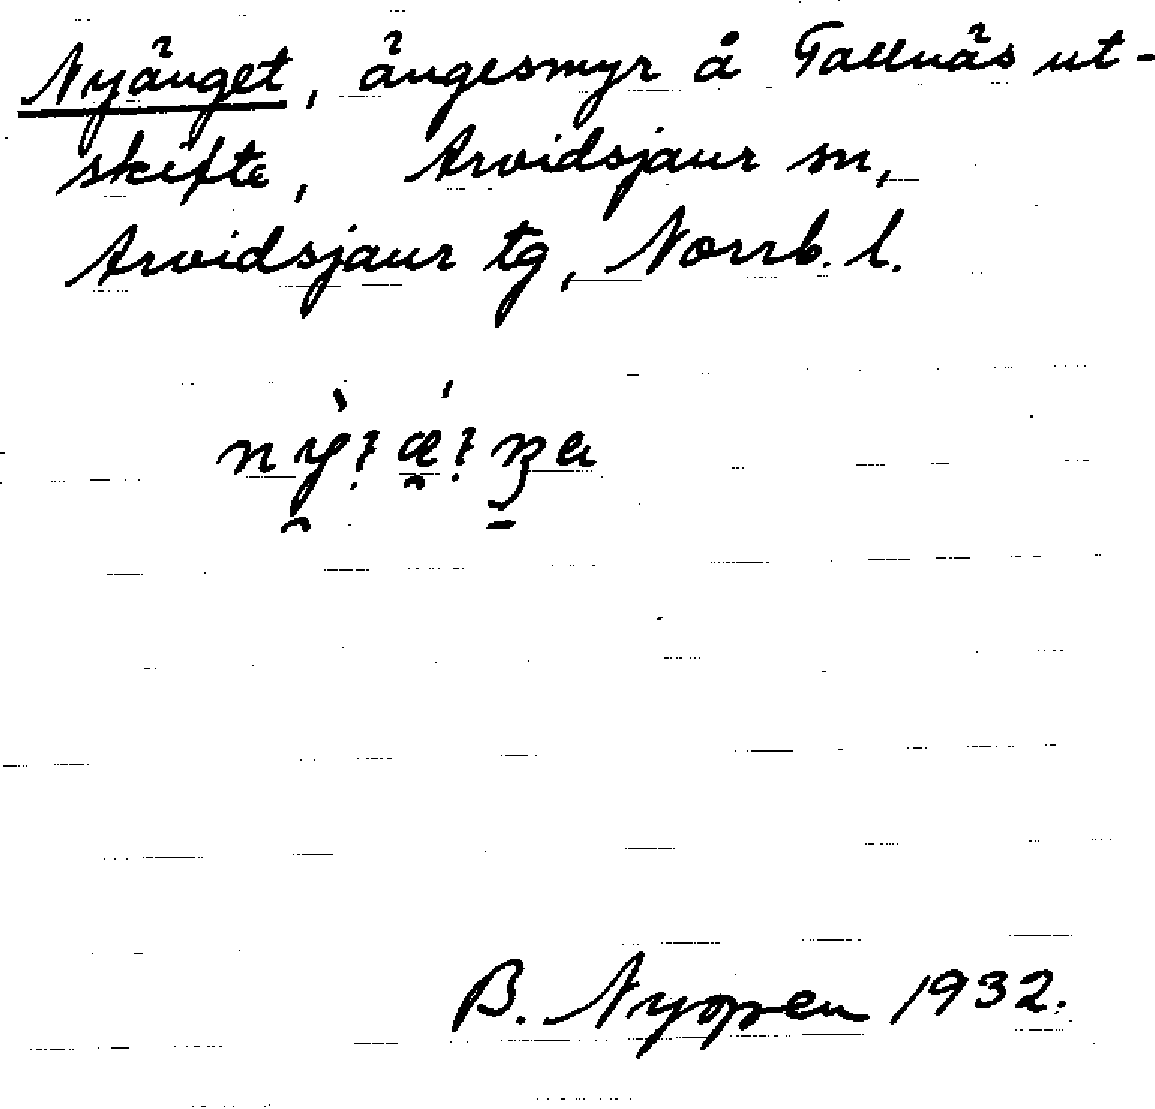 Nyänget, ängesmyr å Tallnäs ut-
skifte, Arvidsjaur sn,
Arvidsjaur tg, Norrb. l.
B. Nyopen 1932.